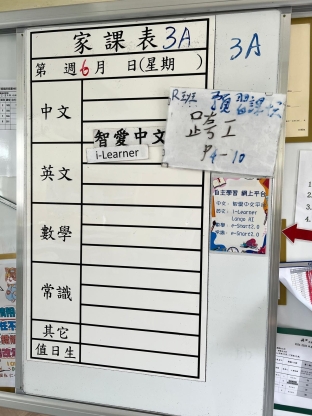 家課表 3A
3A
第 週 6 月 日(星期 )
R班 預習課
P4-10
中文
智愛中文
i-Learner
英文
數學
常識
其它
值日生
自主學習 網上平台
中文：智愛中文平台
英文：i-Learner
Longo AI
數學：e-Smart2.0
常識：e-Smart2.0